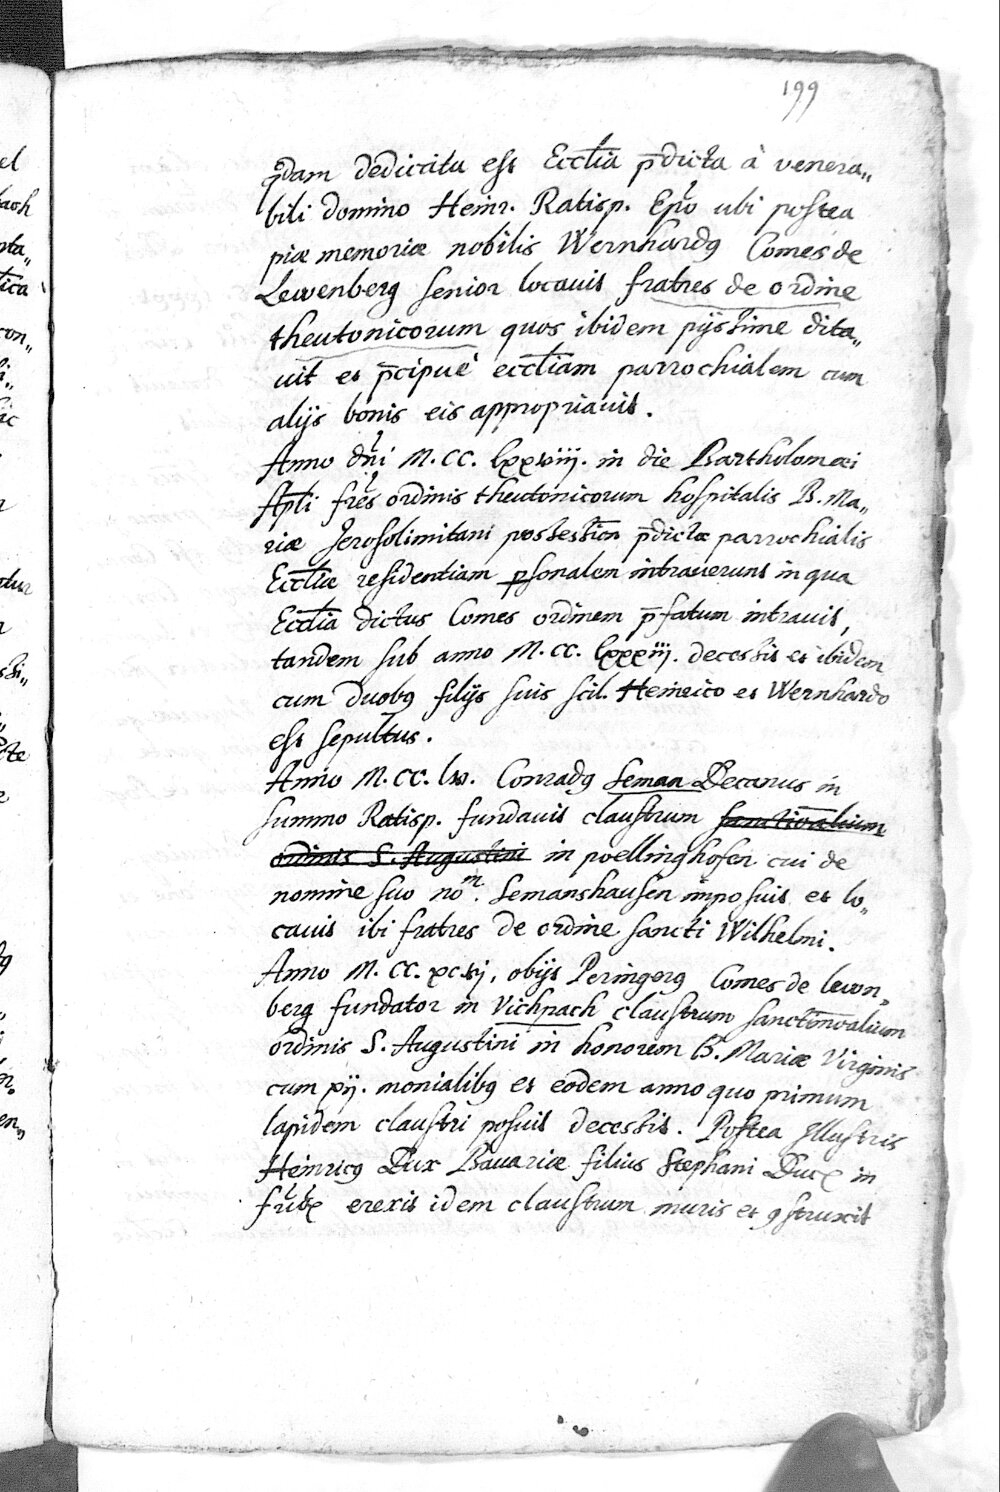 199
p̄dam dedicata est Eccl̄ia p̄dicta à venera„
bili domino Heinr. Ratisp. Ep̄o ubi postea
piæ memoriæ nobilis Wernhardꝰ Comes de
Lewenberg senior locavit fratres de ordine
theutonicorum quos ibidem pijssime dita„
vit et p̄cipuè eccl̄iam parrochialem cum
alijs bonis eis appropriavit.
Anno dn̄i M.CC. lxxviii. in die Bartholomæi
Ap̄li fr̄es ordinis theutonicorum hospitalis B. Ma„
riæ Jerosolimitani possessiōn p̄dictæ parrochialis
Eccl̄iæ residentiam ꝑsonalem intraverunt in qua
Eccl̄ia dictus Comes ordinem p̄fatum intravit,
tandem sub anno M.CC. lxxxiii. decessit et ibidem
cum duobꝰ filijs suis scil. Heinrico et Wernhardo
est sepultus.
Anno M.CC. lv. Conradꝰ Leman Decanus in
summo Ratisp. fundavit claustrum sanctimonialium
ordinis S. Augustini in poellinghofen cui de
nomine suo no͞m. Lemanshausen imposuit et lo„
cavit ibi fratres de ordine sancti Wilhelmi.
Anno M. CC. xc.vj, obijt Peringerꝰ Comes de lewen„
berg fundator in Vichpach claustrum sanctimonialium
ordinis S. Augustini in honorem B. Mariæ Virginis
cum xij. monialibꝰ et eodem anno quo primum
lapidem claustri posuit decessit. Postea Illustris
Heinricꝰ Dux Bavariæ filius Stephani Ducꝭ in
erexit idem claustrum muris et ꝯstruxit